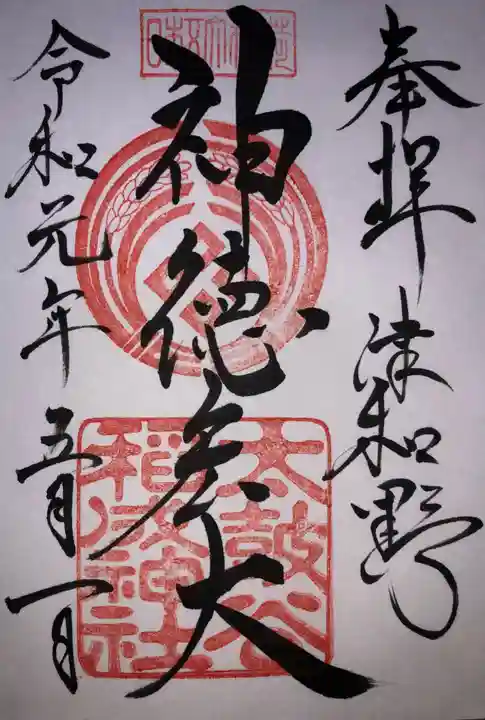 奉拝 津和野
神徳宏大
令和元年 五月一日
太皷谷
稲成神社